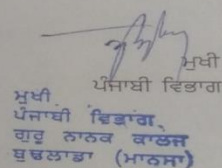 ਮੁਖੀ
ਪੰਜਾਬੀ ਵਿਭਾਗ
ਮੁਖੀ
ਪੰਜਾਬੀ ਵਿਭਾਗ,
ਗੁਰੂ ਨਾਨਕ ਕਾਲਜ
ਬੁਢਲਾਡਾ (ਮਾਨਸਾ)